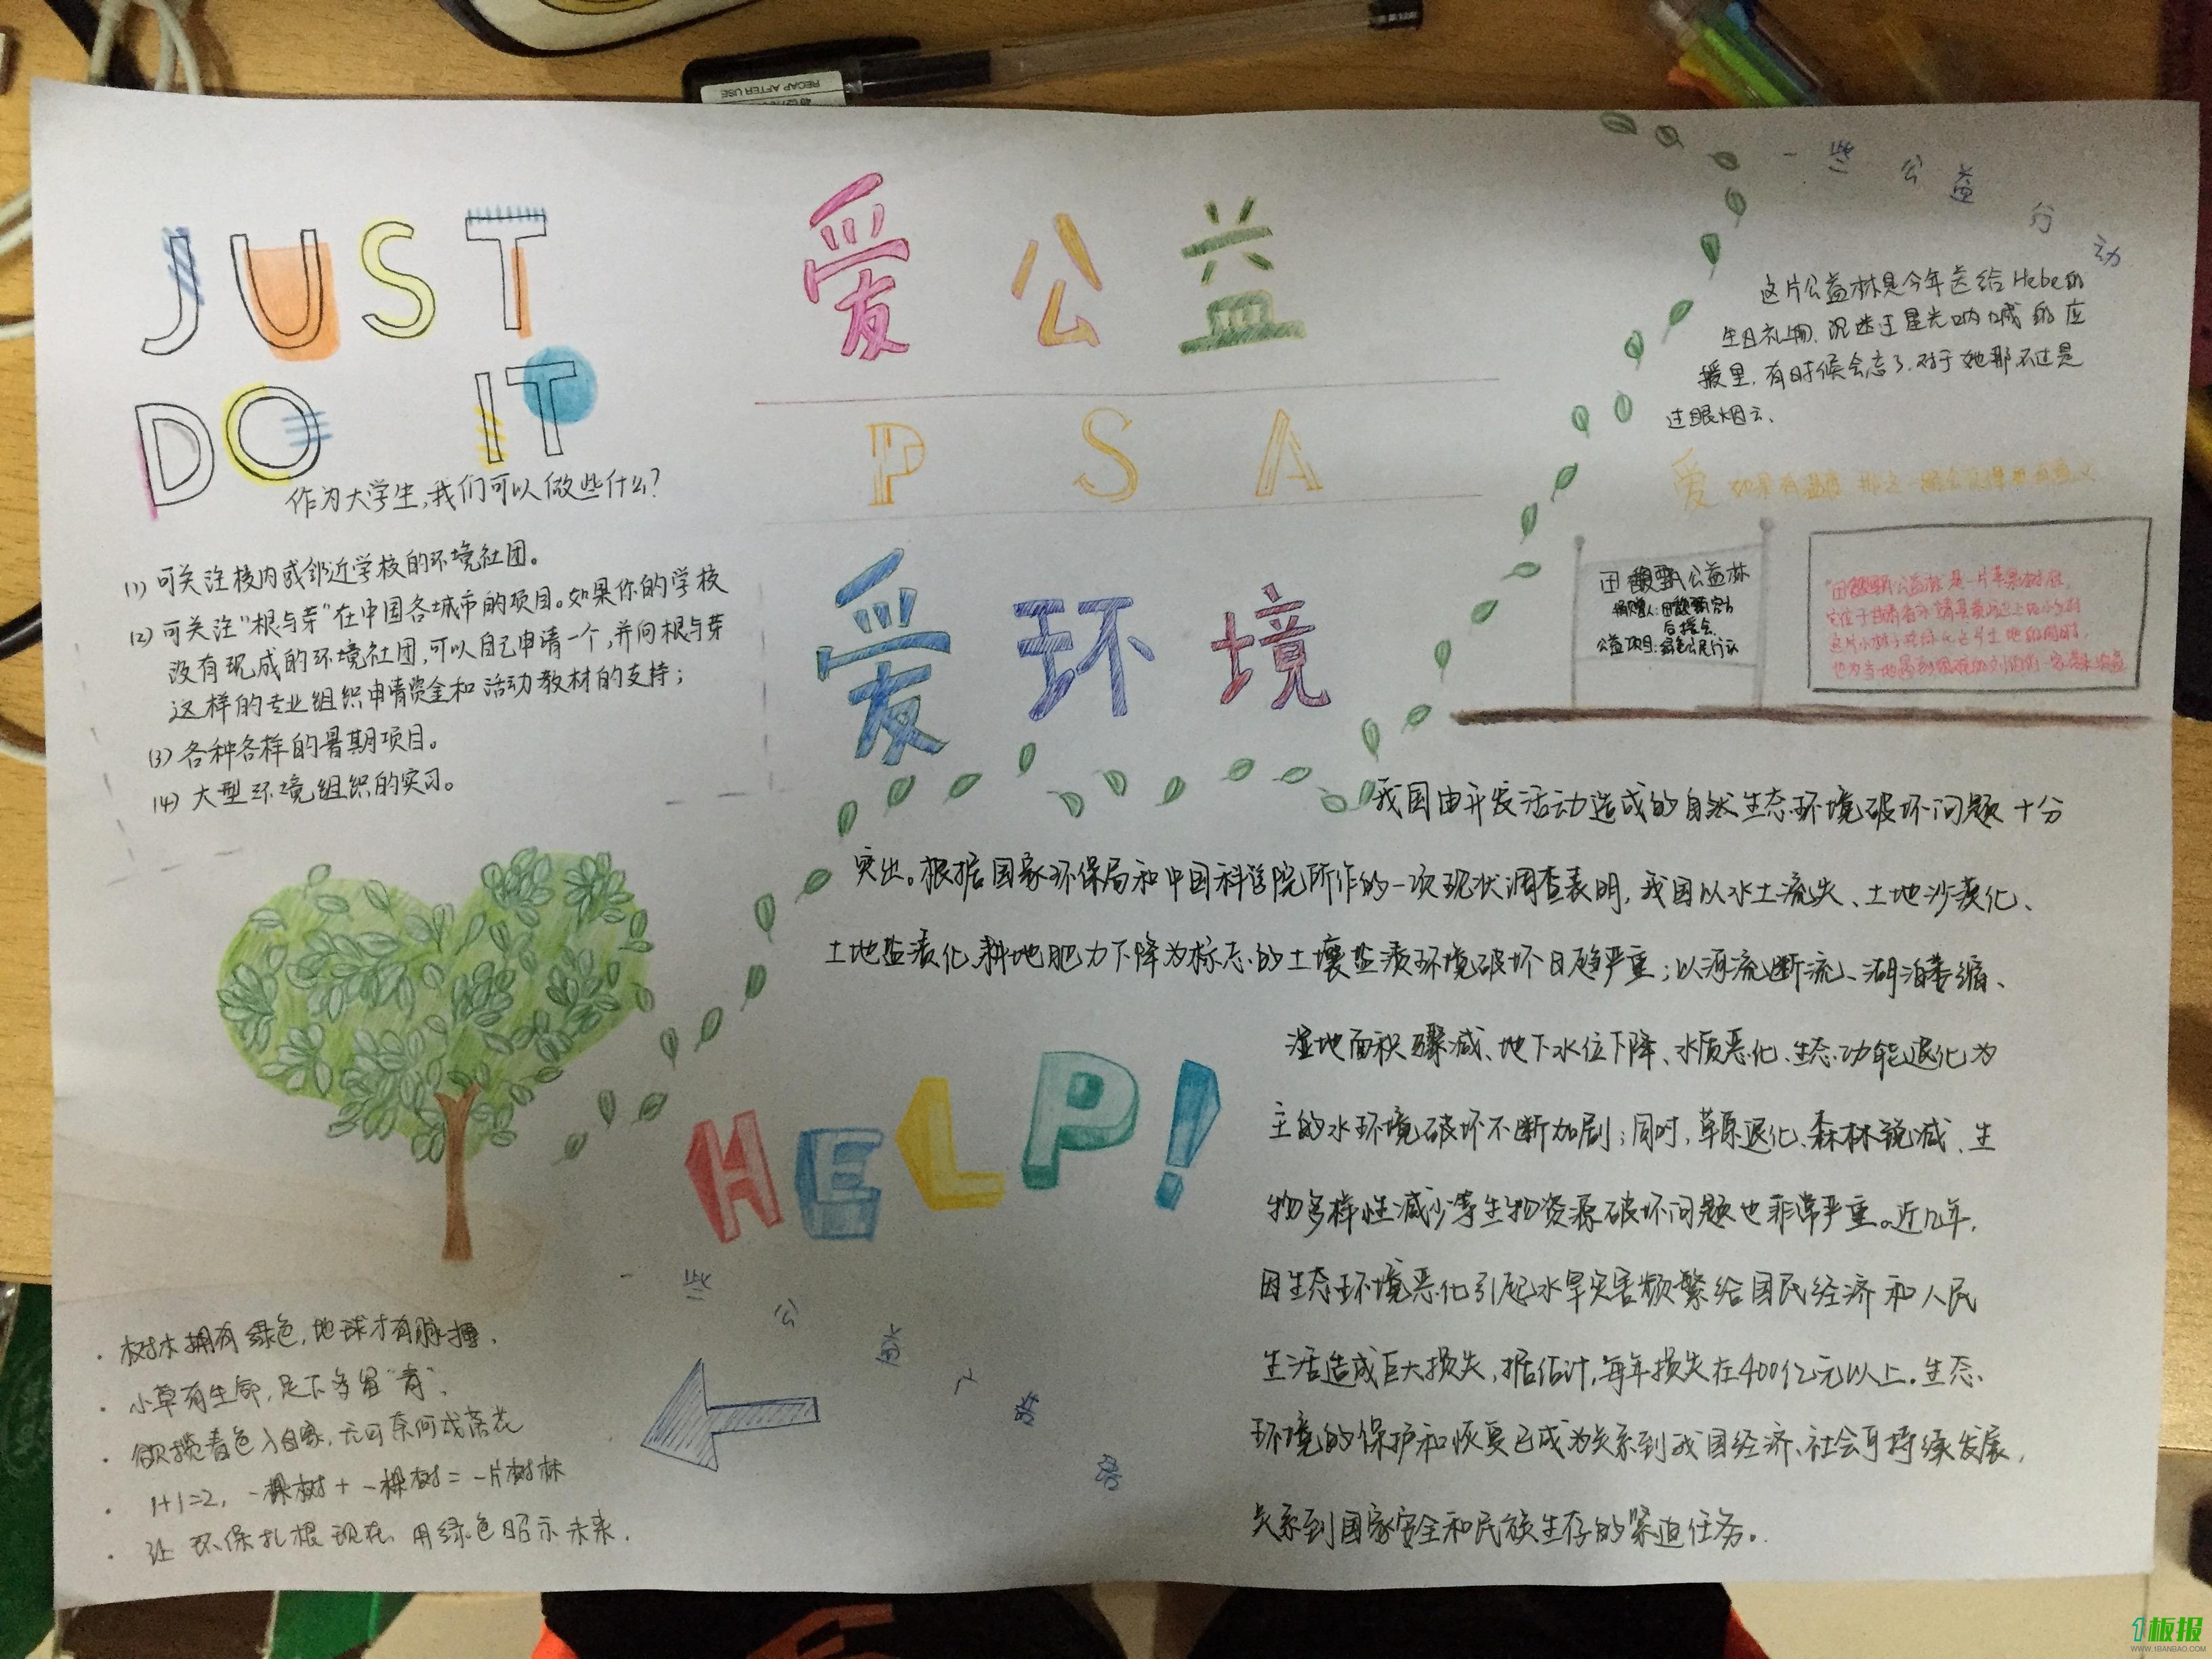 RECAP AFTER USE
JUST
DO IT
作为大学生,我们可以做些什么?
(1) 可关注校内或邻近学校的环境社团。
(2) 可关注“根与芽”在中国各城市的项目。如果你的学校
没有现成的环境社团,可以自己申请一个,并向根与芽
这样的专业组织申请资金和活动教材的支持;
(3) 各种各样的暑期项目。
(4) 大型环境组织的实习。
爱公益
PSA
爱环境
一些公益行动
这片公益林是今年送给Hebe的
生日礼物.沉迷过星光呐喊的应
援里,有时候会忘了.对于她那不过是
过眼烟云.
爱 如果有温度
田馥甄公益林
捐赠人:田馥甄官方
后援会
公益项目:绿色公民行动
“田馥甄公益林”是一片苹果树林,
我国由开发活动造成的自然生态环境破坏问题十分
突出。根据国家环保局和中国科学院所作的一次现状调查表明,我国以水土流失、土地沙漠化、
土地盐渍化、耕地肥力下降为标志的土壤盐渍环境破坏日趋严重;以河流断流、湖泊萎缩、
湿地面积骤减、地下水位下降、水质恶化、生态功能退化为
主的水环境破坏不断加剧;同时,草原退化、森林锐减、生
物多样性减少等生物资源破坏问题也非常严重。近几年,
因生态环境恶化引起水旱灾害频繁给国民经济和人民
生活造成巨大损失,据估计,每年损失在400亿元以上.生态
环境的保护和恢复已成为关系到我国经济、社会可持续发展,
关系到国家安全和民族生存的紧迫任务。
HELP!
一些公益广告语
· 树木拥有绿色,地球才有脉搏.
· 小草有生命,足下多留“青”.
· 欲揽春色入自家,无可奈何成落花
· 1+1=2, 一棵树+一棵树=一片树林
· 让环保扎根现在,用绿色昭示未来.
1板报
WWW.1BANBAO.COM